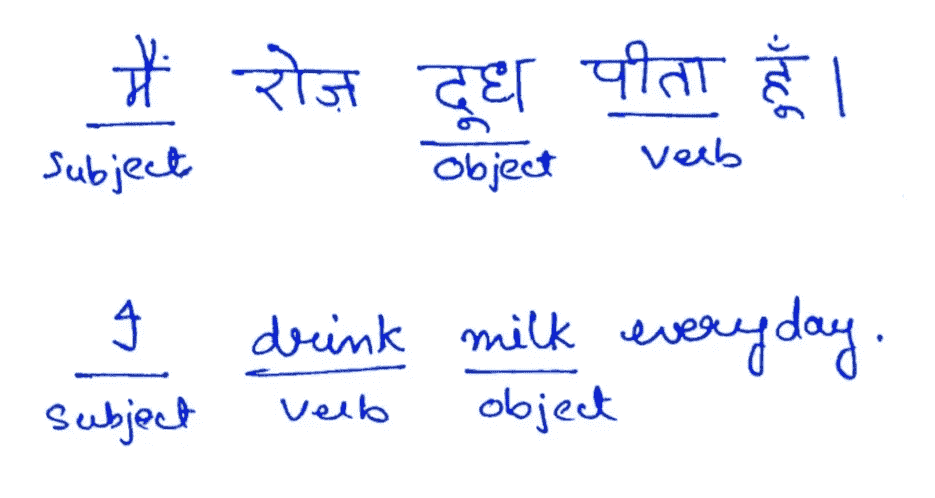 मैं रोज़ दूध पीता हूँ।
subject object verb
I drink milk everyday.
subject verb object